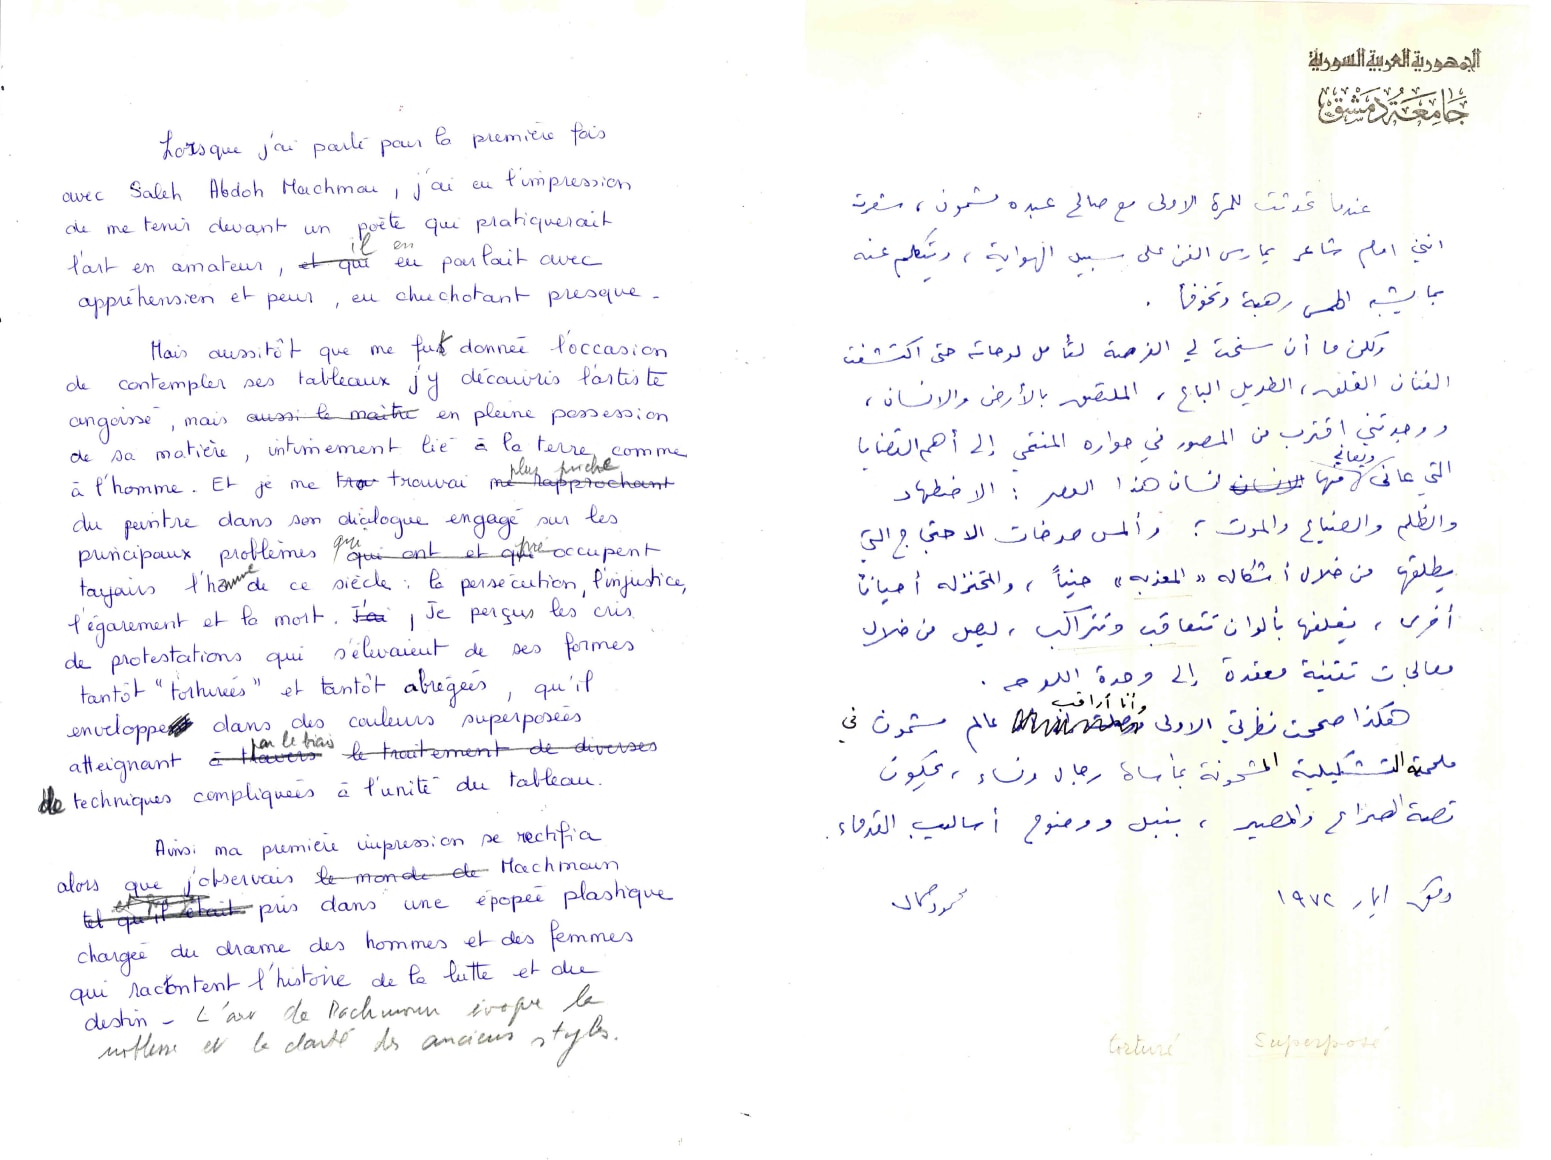 Lorsque j'ai parlé pour la première fois
avec Saleh Abdoh Machmou, j'ai eu l'impression
de me tenir devant un poète qui pratiquerait
l'art en amateur, et qui il en en parlait avec
appréhension et peur, en chuchotant presque -
Mais aussitôt que me fut donnée l'occasion
de contempler ses tableaux j'y découvris l'artiste
angoissé, mais aussi le maître en pleine possession
de sa matière, intimement lié à la terre comme
à l'homme. Et je me trou trouvai me rapprochant plus proche
du peintre dans son dialogue engagé sur les
principaux problèmes qui ont et qui qui préoccupent
l'homme de ce siècle : la persécution, l'injustice,
l'égarement et la mort. J'ai, Je perçus les cris
de protestations qui s'élevaient de ses formes
tantôt "torturées" et tantôt abrégées, qu'il
enveloppe dans des couleurs superposées
atteignant à travers par le biais le traitement de diverses
de techniques compliquées à l'unité du tableau.
Ainsi ma première impression se rectifia
alors que j'observais le monde de Machmoun
tel qu'il était pris dans une épopée plastique
chargée du drame des hommes et des femmes
qui racontent l'histoire de la lutte et du
destin - L'art de Machmoun évoque la
noblesse et la clarté des anciens styles.
الجمهورية العربية السورية
جامعة دمشق
عندما تحدثت للمرة الاولى مع صالح عبده مشمون، شعرت
انني امام شاعر يمارس الفن على سبيل الهواية، ويتكلم عنه
بما يشبه الهمس رهبة وتخوفاً.
ولكن ما أن سنحت لي الفرصة لتأمل لوحاته حتى اكتشفت
الفنان القلق، الطويل الباع، الملتصق بالأرض والانسان،
ووجدتني اقترب من المصور في حواره المنتمي إلى أهم القضايا
التي عانى ويعاني منها الانسان انسان هذا العصر : الاضطهاد
والظلم والضياع والموت؛ وألمس صرخات الاحتجاج التي
يطلقها من خلال أشكاله "المعذبه" حيناً، والمختزله أحياناً
أخرى، يغلفها بألوان تتعاقب وتتراكب، ليصل من خلال
معالجات تقنية معقدة إلى وحدة اللوحه.
هكذا صححت نظرتي الاولى وأنا أراقب عالم مشمون في
ملحمته التشكيلية المشحونة بمأساة رجال ونساء، يحكون
قصة الصراع والمصير، بنبل ووضوح أساليب القدماء.
دمشق ايار ١٩٧٢
محمود حماد
torturé superposé